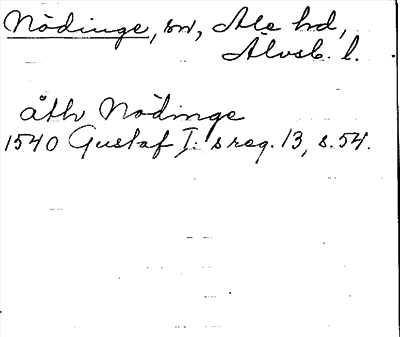 Nödinge, sn, Ale hd,
Älvsb. l.
åth Nödinge
1540 Gustaf I:s reg. 13, s. 54.